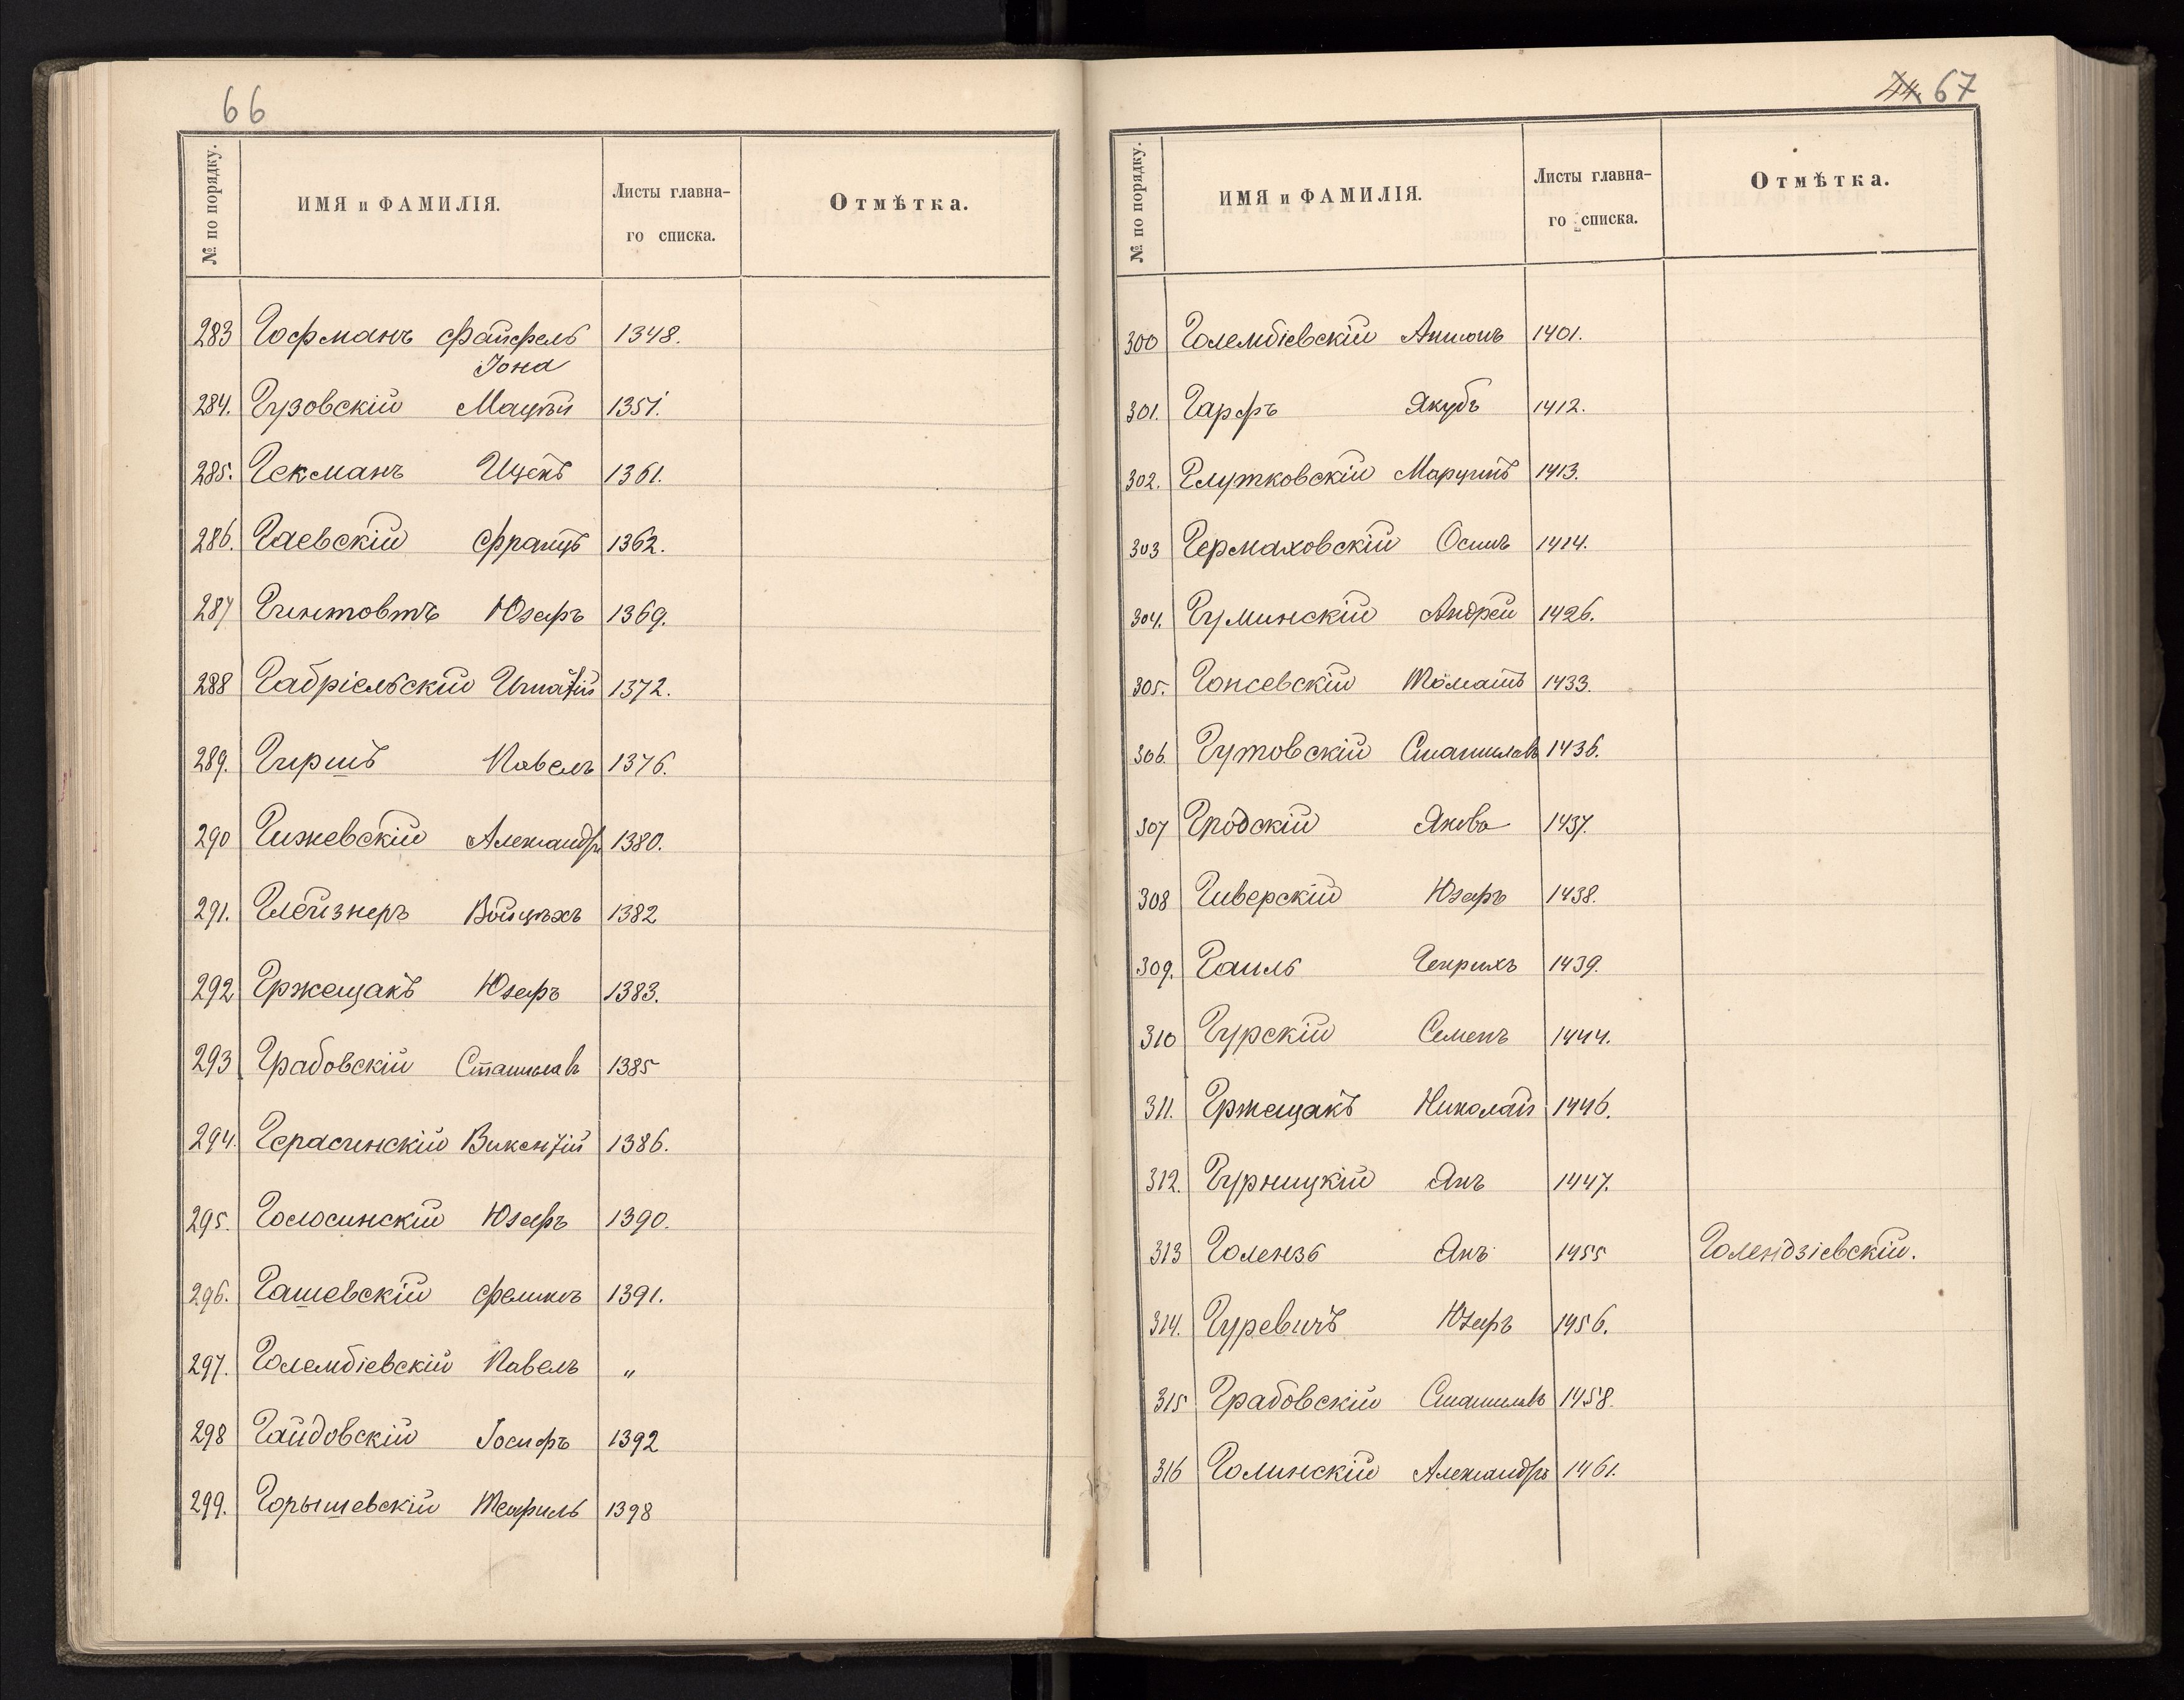 66
№ по порядку.
ИМЯ и ФАМИЛІЯ.
Листы главна-
го списка.
Отмѣтка.
283 Гофманъ Файфель 1348.
Іона
284. Гузовскій Мацѣй 1351.
285. Гекманъ Ицекъ 1361.
286. Гаевскій Францъ 1362.
287 Гинтовтъ Юзефъ 1369.
288 Габріельскій Игнатій 1372.
289. Гиршъ Павелъ 1376.
290 Гижевскій Александръ 1380.
291. Глейзнеръ Войцѣхъ 1382
292 Гржещакъ Юзефъ 1383.
293 Грабовскій Станиславъ 1385
294. Герасинскій Викентій 1386.
295. Голосинскій Юзефъ 1390.
296. Гашевскій Феликсъ 1391.
297. Голембіевскій Павелъ "
298 Гайдовскій Іосифъ 1392
299. Горышевскій Теофиль 1398
44. 67
№ по порядку.
ИМЯ и ФАМИЛІЯ.
Листы главна-
го списка.
Отмѣтка.
300 Голембіевскій Антонъ 1401.
301. Гарфъ Якубъ 1412.
302. Глутковскій Марцинъ 1413.
303 Гермаховскій Осипъ 1414.
304. Гуминскій Андрей 1426.
305. Гонсевскій Томашъ 1433.
306 Гутовскій Станиславъ 1436.
307 Гродскій Якова 1437.
308 Гиверскій Юзефъ 1438.
309. Гаиль Генрихъ 1439.
310 Гурскій Семенъ 1444.
311. Гржещакъ Николай 1446.
312. Гурницкій Янъ 1447.
313 Голензь Янъ 1455 Голендзіевскій.
314. Гуревичъ Юзефъ 1456.
315 Грабовскій Станиславъ 1458.
316 Голинскій Александръ 1461.